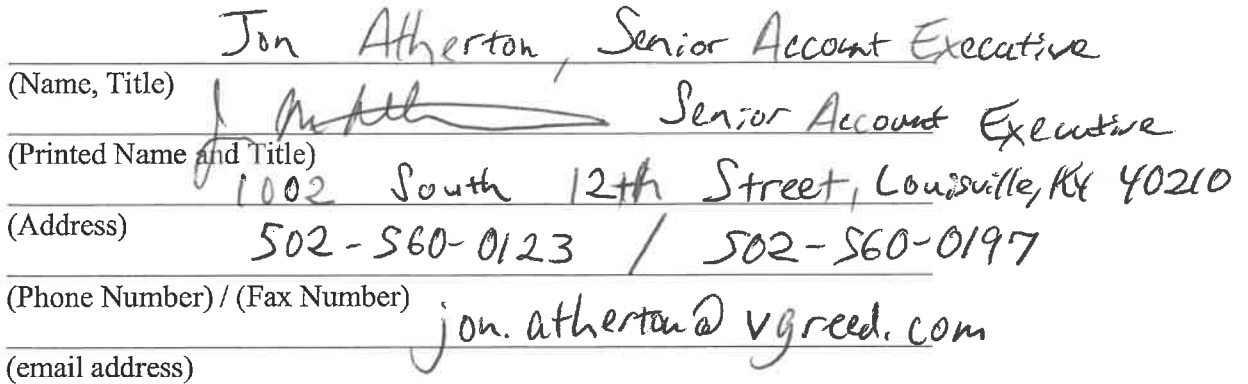 Jon Atherton, Senior Account Executive
(Name, Title)
Senior Account Executive
(Printed Name and Title)
1002 South 12th Street, Louisville, KY 40210
(Address)
502-560-0123 / 502-560-0197
(Phone Number) / (Fax Number)
jon.atherton@vgreed.com
(email address)